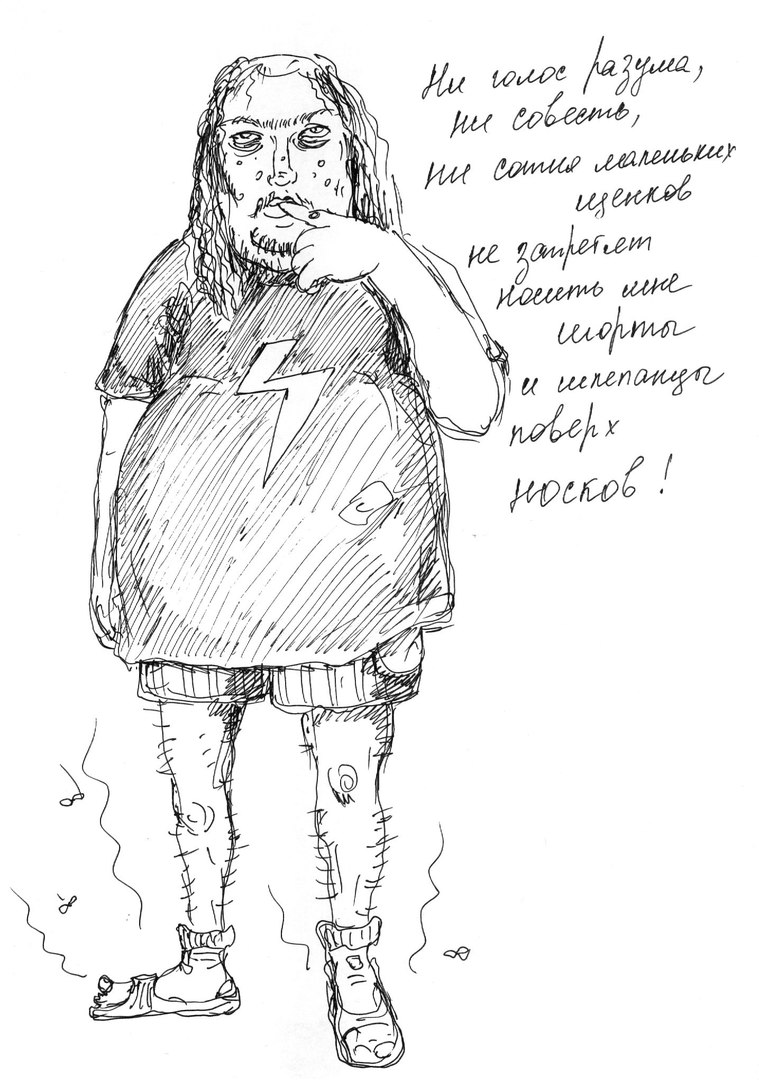 Ни голос разума,
ни совесть,
ни сотня маленьких
щенков
не запретят
носить мне
шорты
и шлепанцы
поверх
носков!